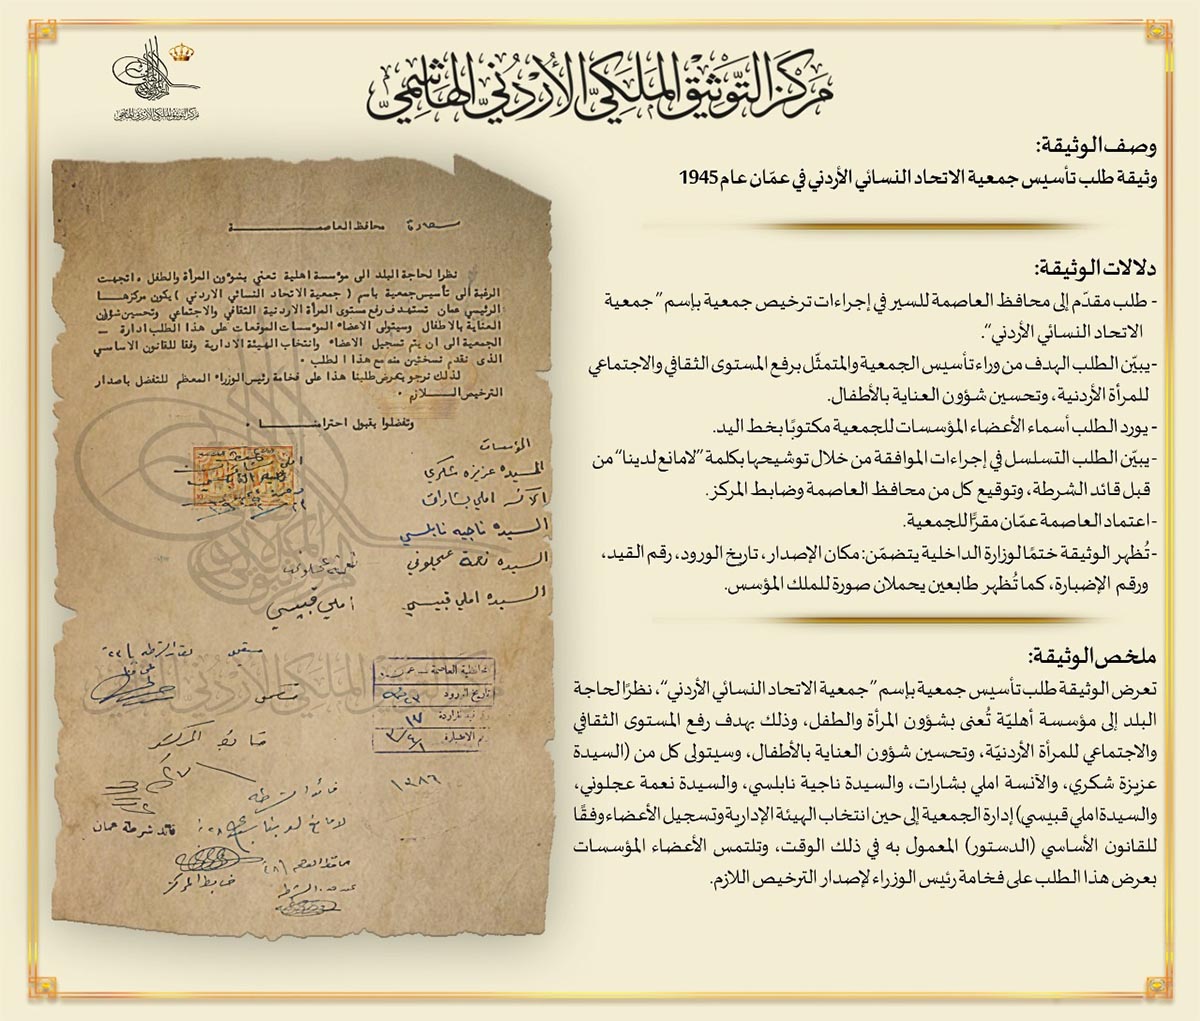 مركز التوثيق الملكي الأردني الهاشمي
مركز التوثيق الملكي الأردني الهاشمي
وصف الوثيقة:
وثيقة طلب تأسيس جمعية الاتحاد النسائي الأردني في عمّان عام 1945
دلالات الوثيقة:
- طلب مقدّم إلى محافظ العاصمة للسير في إجراءات ترخيص جمعية بإسم "جمعية
الاتحاد النسائي الأردني".
-يبيّن الطلب الهدف من وراء تأسيس الجمعية والمتمثّل برفع المستوى الثقافي والاجتماعي
للمرأة الأردنية، وتحسين شؤون العناية بالأطفال.
- يورد الطلب أسماء الأعضاء المؤسسات للجمعية مكتوبًا بخط اليد.
- يبيّن الطلب التسلسل في إجراءات الموافقة من خلال توشيحها بكلمة "لامانع لدينا" من
قبل قائد الشرطة، وتوقيع كل من محافظ العاصمة وضابط المركز.
-اعتماد العاصمة عمّان مقرًّا للجمعية.
-تُظهر الوثيقة ختمًا لوزارة الداخلية يتضمّن: مكان الإصدار، تاريخ الورود، رقم القيد،
ورقم الإضبارة، كما تُظهر طابعين يحملان صورة للملك المؤسس.
ملخص الوثيقة:
تعرض الوثيقة طلب تأسيس جمعية بإسم "جمعية الاتحاد النسائي الأردني"، نظرًا لحاجة
البلد إلى مؤسسة أهليّة تُعنى بشؤون المرأة والطفل، وذلك بهدف رفع المستوى الثقافي
والاجتماعي للمرأة الأردنيّة، وتحسين شؤون العناية بالأطفال، وسيتولى كل من (السيدة
عزيزة شكري، والآنسة املي بشارات، والسيدة ناجية نابلسي، والسيدة نعمة عجلوني،
والسيدة املي قبيسي) إدارة الجمعية إلى حين انتخاب الهيئة الإدارية وتسجيل الأعضاء وفقًا
للقانون الأساسي (الدستور) المعمول به في ذلك الوقت، وتلتمس الأعضاء المؤسسات
بعرض هذا الطلب على فخامة رئيس الوزراء لإصدار الترخيص اللازم.
سعادة محافظ العاصمـــة
نظرا لحاجة البلد الى مؤسسة اهلية تعني بشوون المرأة والطفل ، اتجهت
الرغبة الى تأسيس جمعية باسم ( جمعية الاتحاد النسائي الاردني ) يكون مركزهـا
الرئيسي عمان تستهدف رفع مستوى المرأة الاردنية الثقافي والاجتماعي وتحسين شوون
العناية بالاطفال وسيتولى الاعضاء المؤسسات الموقعات على هذا الطلب ادارة
الجمعية الى ان يتم تسجيل الاعضاء وانتخاب الهيئة الادارية وفقا للقانون الاساسي
الذى نقدم نسختين منه مع هذا الطلب ·
لذلك نرجو بعرض طلبنا هذا على فخامة رئيس الوزراء المعظم للتفضل باصدار
الترخيص الــلازم ·
وتفضلوا بقبول احترامنـــا ·
المؤسسات
السيده عزيزه شكري
الآنسه املي بشارات
السيده ناجيه نابلسي
السيده نعمة عجلوني
السيده املي قبيسي
املي قبيسي
محافظة العاصمة
تاريخ الورود
١٧
ضابط المركز
١٢٨٦
قائد الشرطة
لا مانع لدينا
قائد شرطة عمان
ضابط المركز